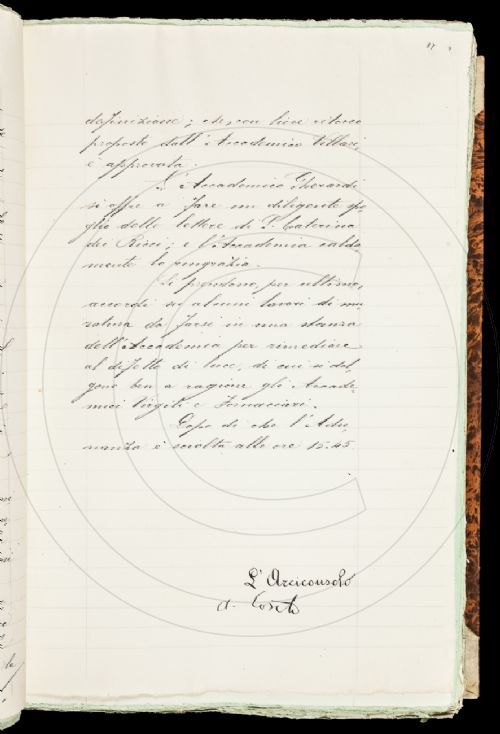 87
definizione; che, con lieve ritocco
proposto dall'Accademico Villari,
è approvata.
L'Accademico Gherardi
si offre a fare un diligente spo-
glio delle lettere di S. Caterina
dei Ricci; e l'Accademia calda-
mente lo ringrazia.
Si prendono, per ultimo,
accordi su alcuni lavori di mu-
ratura da farsi in una stanza
dell'Accademia per rimediare
al difetto di luce, di cui si dol-
gono ben a ragione gli Accade-
mici Virgili e Fornaciari.
Dopo di che l'Adu-
nanza è sciolta alle ore 15.45.
L'Arciconsolo
A.